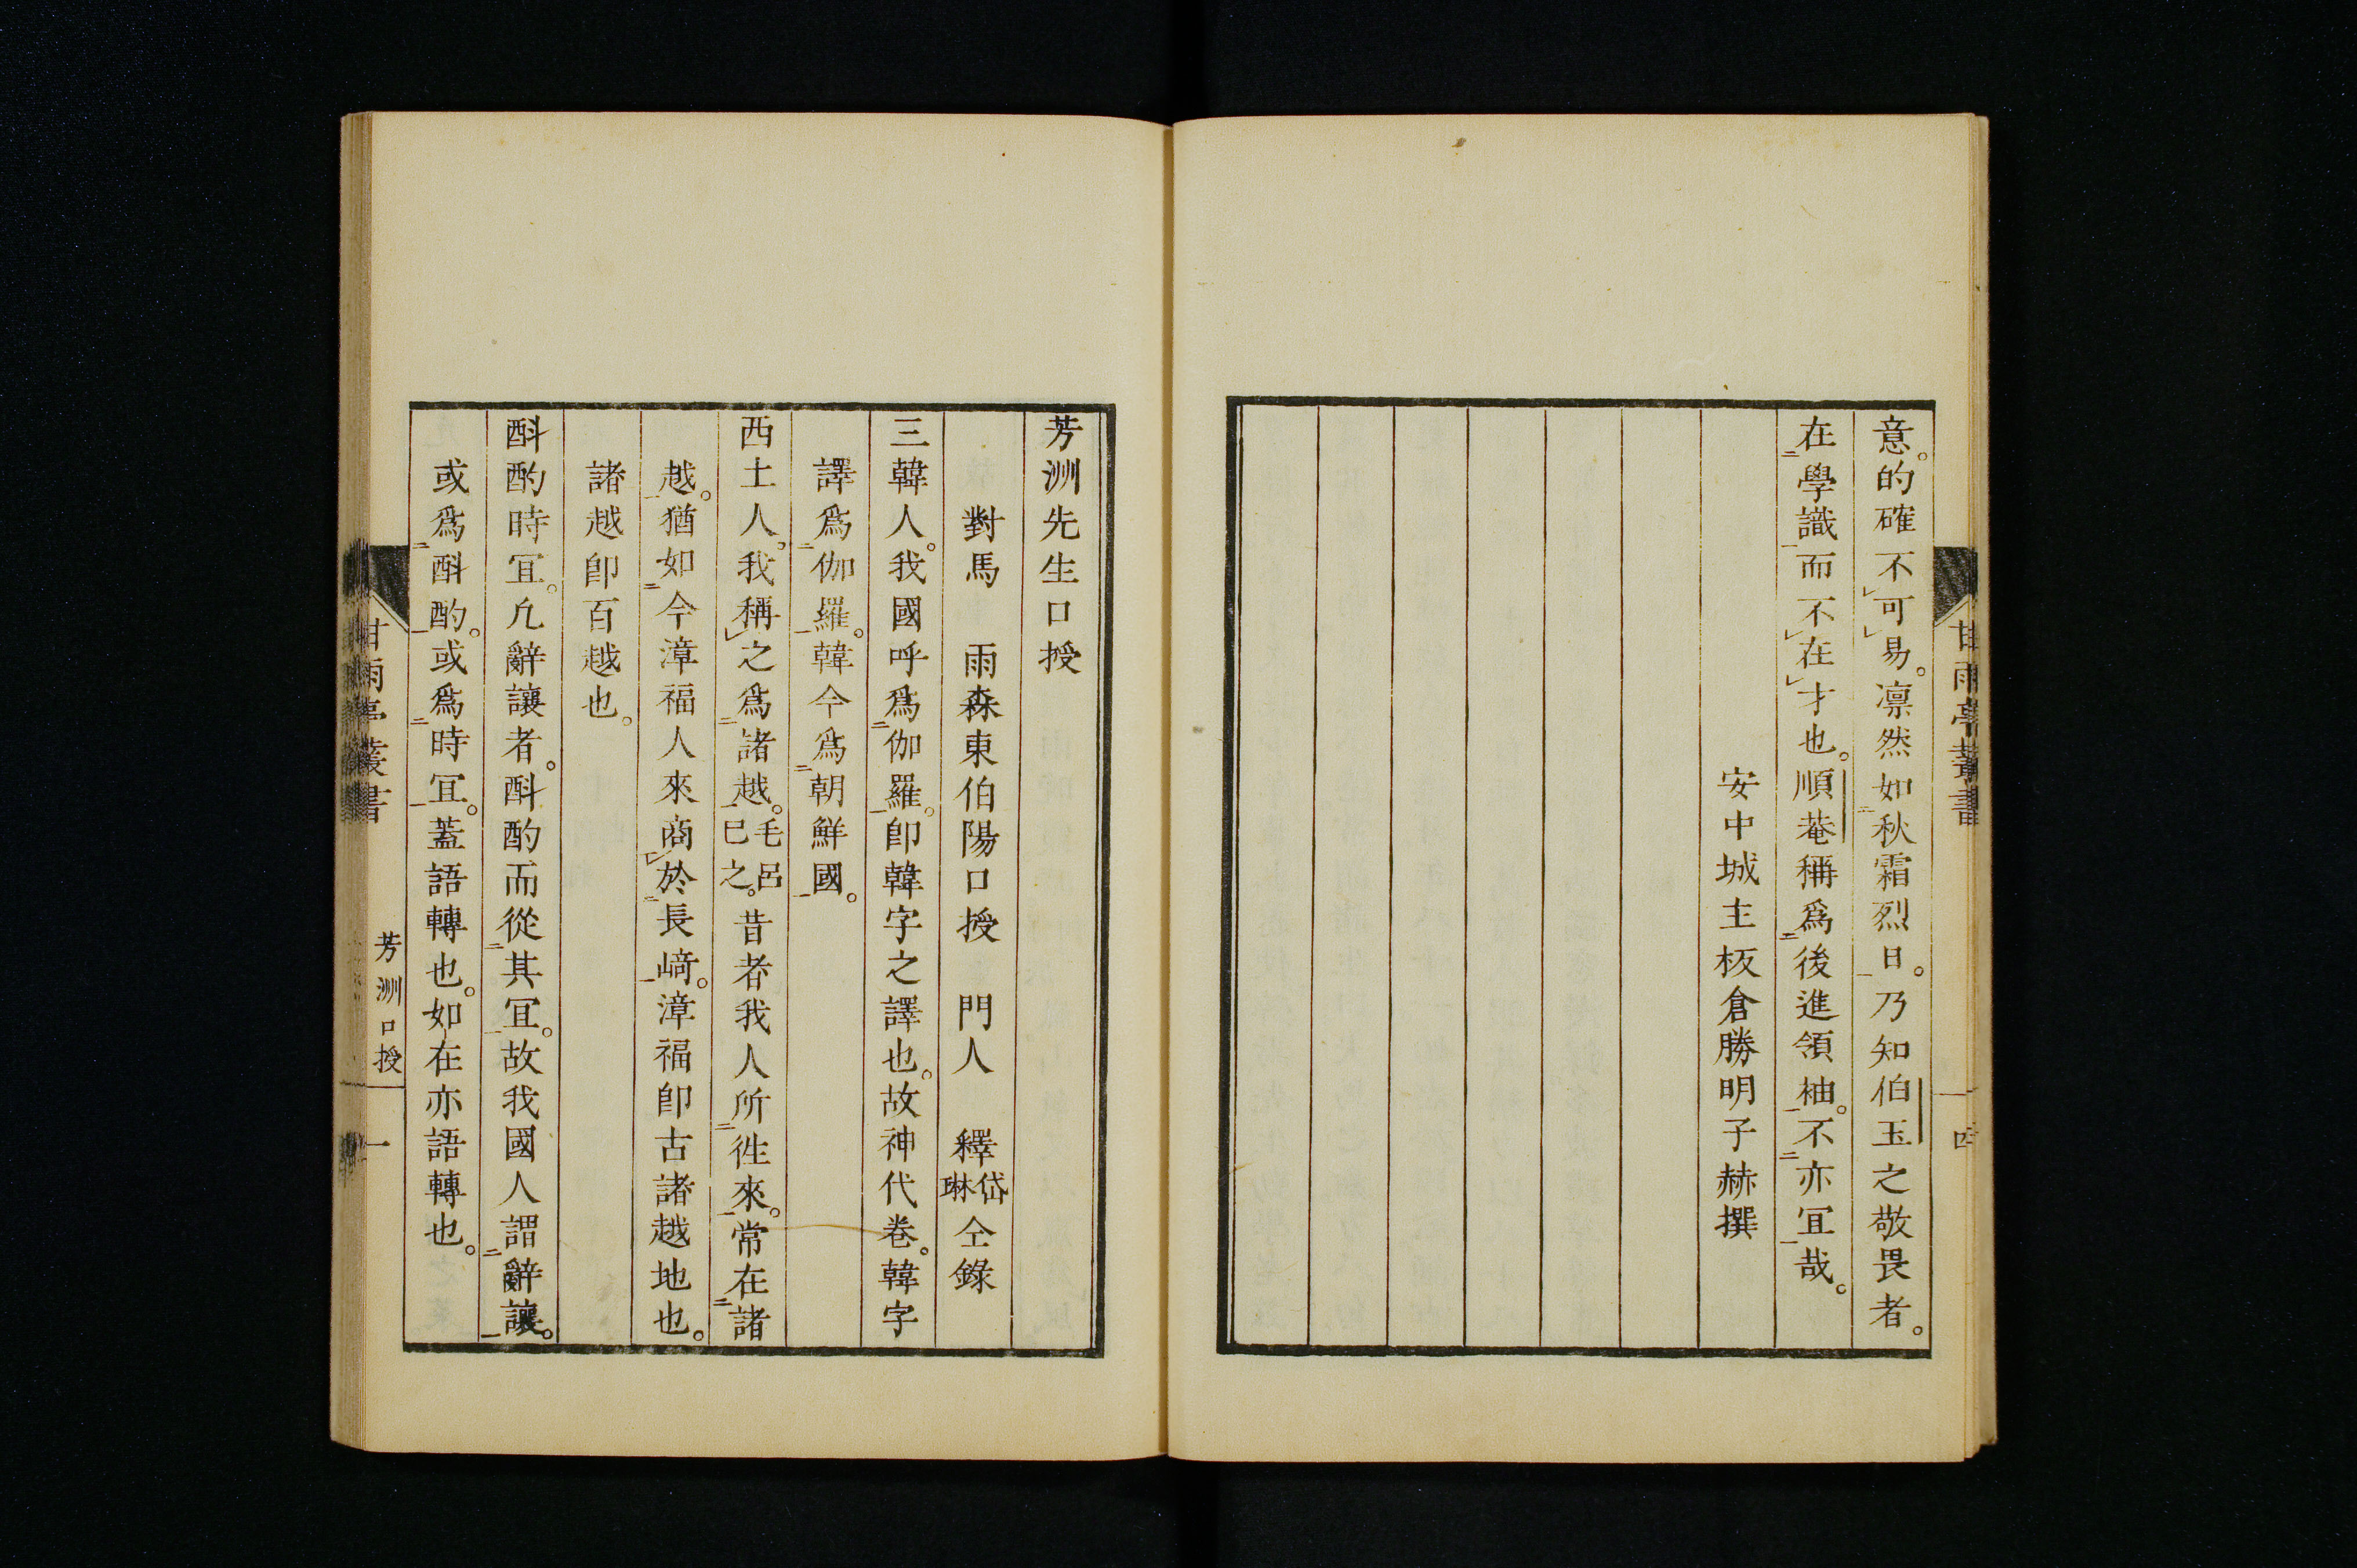 意。的確不可易。凛然如秋霜烈日。乃知伯玉之敬畏者。
在學識而不在才也。順菴稱爲後進領袖。不亦冝哉。
安中城主板倉勝明子赫撰
甘雨亭叢書
四
芳洲先生口授
對馬　雨森東伯陽口授　門人　釋岱琳仝錄
三韓人。我國呼爲伽羅。卽韓字之譯也。故神代卷。韓字
譯爲伽羅。韓今爲朝鮮國。
西土人。我稱之爲諸越。毛呂巳之。昔者我人所徃來。常在諸
越。猶如今漳福人來商於長崎。漳福卽古諸越地也。
諸越卽百越也。
斟酌時冝。凢辭讓者。斟酌而從其冝。故我國人謂辭讓。
或爲斟酌。或爲時冝。蓋語轉也。如在亦語轉也。
甘雨亭叢書
芳洲口授
一